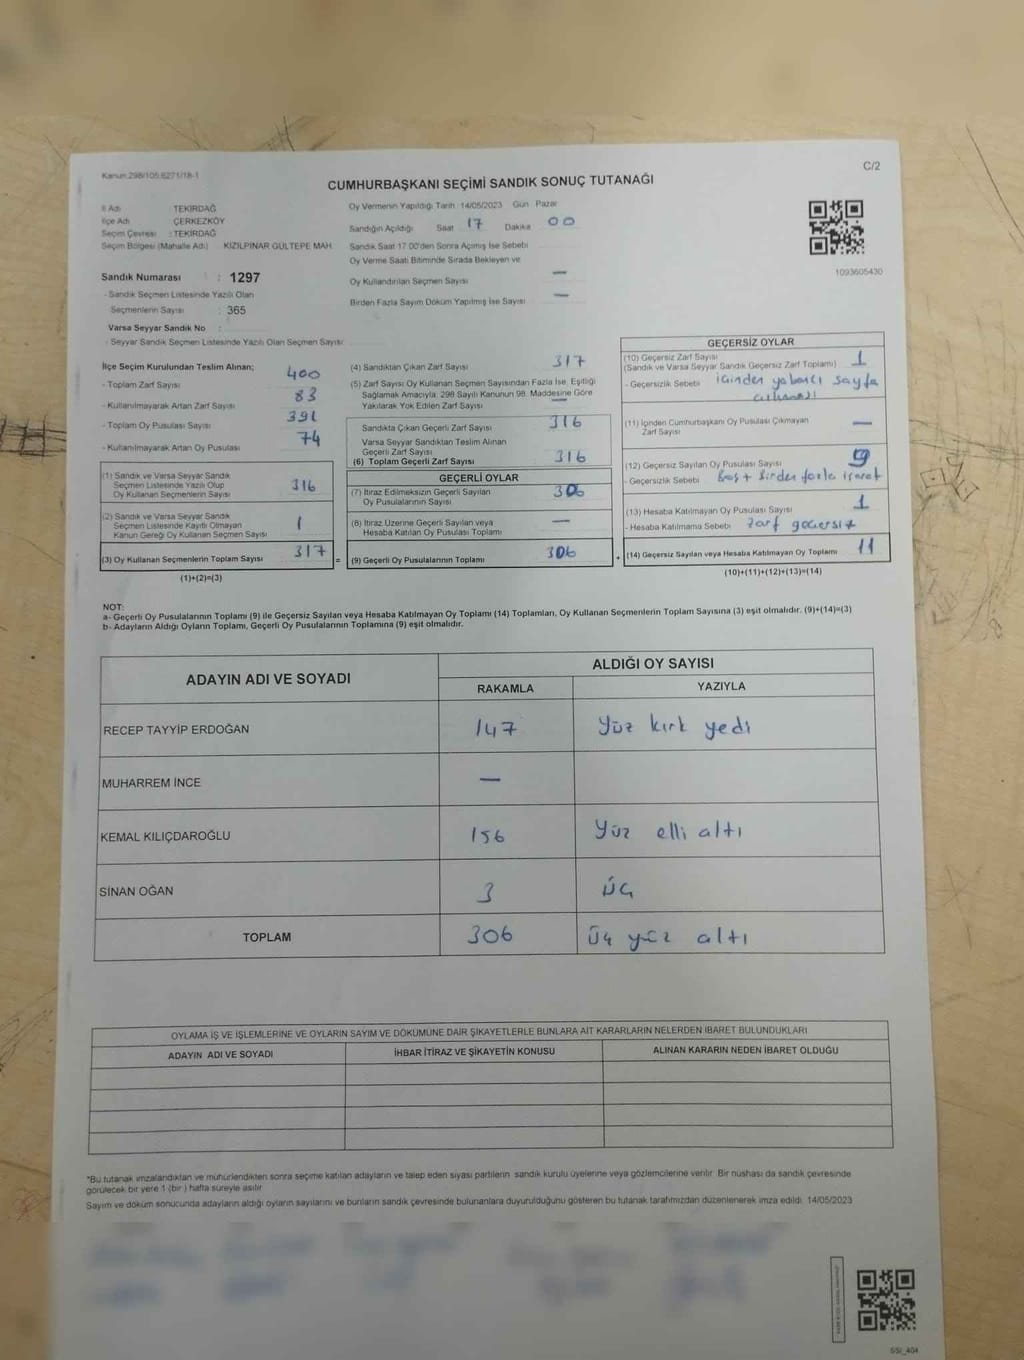 Kanun:298/105,6271/18-1
C/2
CUMHURBAŞKANI SEÇİMİ SANDIK SONUÇ TUTANAĞI
İl Adı TEKİRDAĞ
İlçe Adı ÇERKEZKÖY
Seçim Çevresi : TEKİRDAĞ
Seçim Bölgesi (Mahalle Adı) KIZILPINAR GÜLTEPE MAH
Sandık Numarası : 1297
- Sandık Seçmen Listesinde Yazılı Olan
Seçmenlerin Sayısı : 365
Varsa Seyyar Sandık No :
- Seyyar Sandık Seçmen Listesinde Yazılı Olan Seçmen Sayısı:
Oy Vermenin Yapıldığı Tarih 14/05/2023 Gün Pazar
Sandığın Açıldığı Saat 17 Dakika 00
Sandık Saat 17 00'den Sonra Açımış İse Sebebi
Oy Verme Saati Bitiminde Sırada Bekleyen ve
Oy Kullandırılan Seçmen Sayısı —
Birden Fazla Sayım Döküm Yapılmış İse Sayısı —
1093605430
İlçe Seçim Kurulundan Teslim Alınan;
- Toplam Zarf Sayısı 400
- Kullanılmayarak Artan Zarf Sayısı 83
- Toplam Oy Pusulası Sayısı 391
- Kullanılmayarak Artan Oy Pusulası 74
(1) Sandık ve Varsa Seyyar Sandık
Seçmen Listesinde Yazılı Olup
Oy Kullanan Seçmenlerin Sayısı 316
(2) Sandık ve Varsa Seyyar Sandık
Seçmen Listesinde Kayıtlı Olmayan
Kanun Gereği Oy Kullanan Seçmen Sayısı 1
(3) Oy Kullanan Seçmenlerin Toplam Sayısı 317 =
(1)+(2)=(3)
(4) Sandıktan Çıkan Zarf Sayısı 317
(5) Zarf Sayısı Oy Kullanan Seçmen Sayısından Fazla İse, Eşitliği
Sağlamak Amacıyla, 298 Sayılı Kanunun 98. Maddesine Göre
Yakılarak Yok Edilen Zarf Sayısı —
Sandıkta Çıkan Geçerli Zarf Sayısı 316
Varsa Seyyar Sandıktan Teslim Alınan
Geçerli Zarf Sayısı
(6) Toplam Geçerli Zarf Sayısı 316
GEÇERLİ OYLAR
(7) İtiraz Edilmeksizin Geçerli Sayılan
Oy Pusulalarının Sayısı 306
(8) İtiraz Üzerine Geçerli Sayılan veya
Hesaba Katılan Oy Pusulası Toplamı —
(9) Geçerli Oy Pusulalarının Toplamı 306 +
GEÇERSİZ OYLAR
(10) Geçersiz Zarf Sayısı 1
(Sandık ve Varsa Seyyar Sandık Geçersiz Zarf Toplamı)
- Geçersizlik Sebebi içinden yabancı sayfa
(11) İçinden Cumhurbaşkanı Oy Pusulası Çıkmayan
Zarf Sayısı —
(12) Geçersiz Sayılan Oy Pusulası Sayısı 9
- Geçersizlik Sebebi Boş + Birden fazla işaret
(13) Hesaba Katılmayan Oy Pusulası Sayısı 1
- Hesaba Katılmama Sebebi Zarf geçersiz
(14) Geçersiz Sayılan veya Hesaba Katılmayan Oy Toplamı 11
(10)+(11)+(12)+(13)=(14)
NOT:
a- Geçerli Oy Pusulalarının Toplamı (9) ile Geçersiz Sayılan veya Hesaba Katılmayan Oy Toplamı (14) Toplamları, Oy Kullanan Seçmenlerin Toplam Sayısına (3) eşit olmalıdır. (9)+(14)=(3)
b- Adayların Aldığı Oyların Toplamı, Geçerli Oy Pusulalarının Toplamına (9) eşit olmalıdır.
ADAYIN ADI VE SOYADI
ALDIĞI OY SAYISI
RAKAMLA YAZIYLA
RECEP TAYYİP ERDOĞAN 147 Yüz kırk yedi
MUHARREM İNCE —
KEMAL KILIÇDAROĞLU 156 Yüz elli altı
SİNAN OĞAN 3 Üç
TOPLAM 306 Üç yüz altı
OYLAMA İŞ VE İŞLEMLERİNE VE OYLARIN SAYIM VE DÖKÜMÜNE DAİR ŞİKAYETLERLE BUNLARA AİT KARARLARIN NELERDEN İBARET BULUNDUKLARI
ADAYIN ADI VE SOYADI İHBAR İTİRAZ VE ŞİKAYETİN KONUSU ALINAN KARARIN NEDEN İBARET OLDUĞU
*Bu tutanak imzalandıktan ve mühürlendikten sonra seçime katılan adayların ve talep eden siyasi partilerin sandık kurulu üyelerine veya gözlemcilerine verilir. Bir nushası da sandık çevresinde
görülecek bir yere 1 (bir ) hafta süreyle asılır
Sayım ve döküm sonucunda adayların aldığı oyların sayılarını ve bunların sandık çevresinde bulunanlara duyurulduğunu gösteren bu tutanak tarafımızdan düzenlenerek imza edildi. 14/05/2023
SSI_404